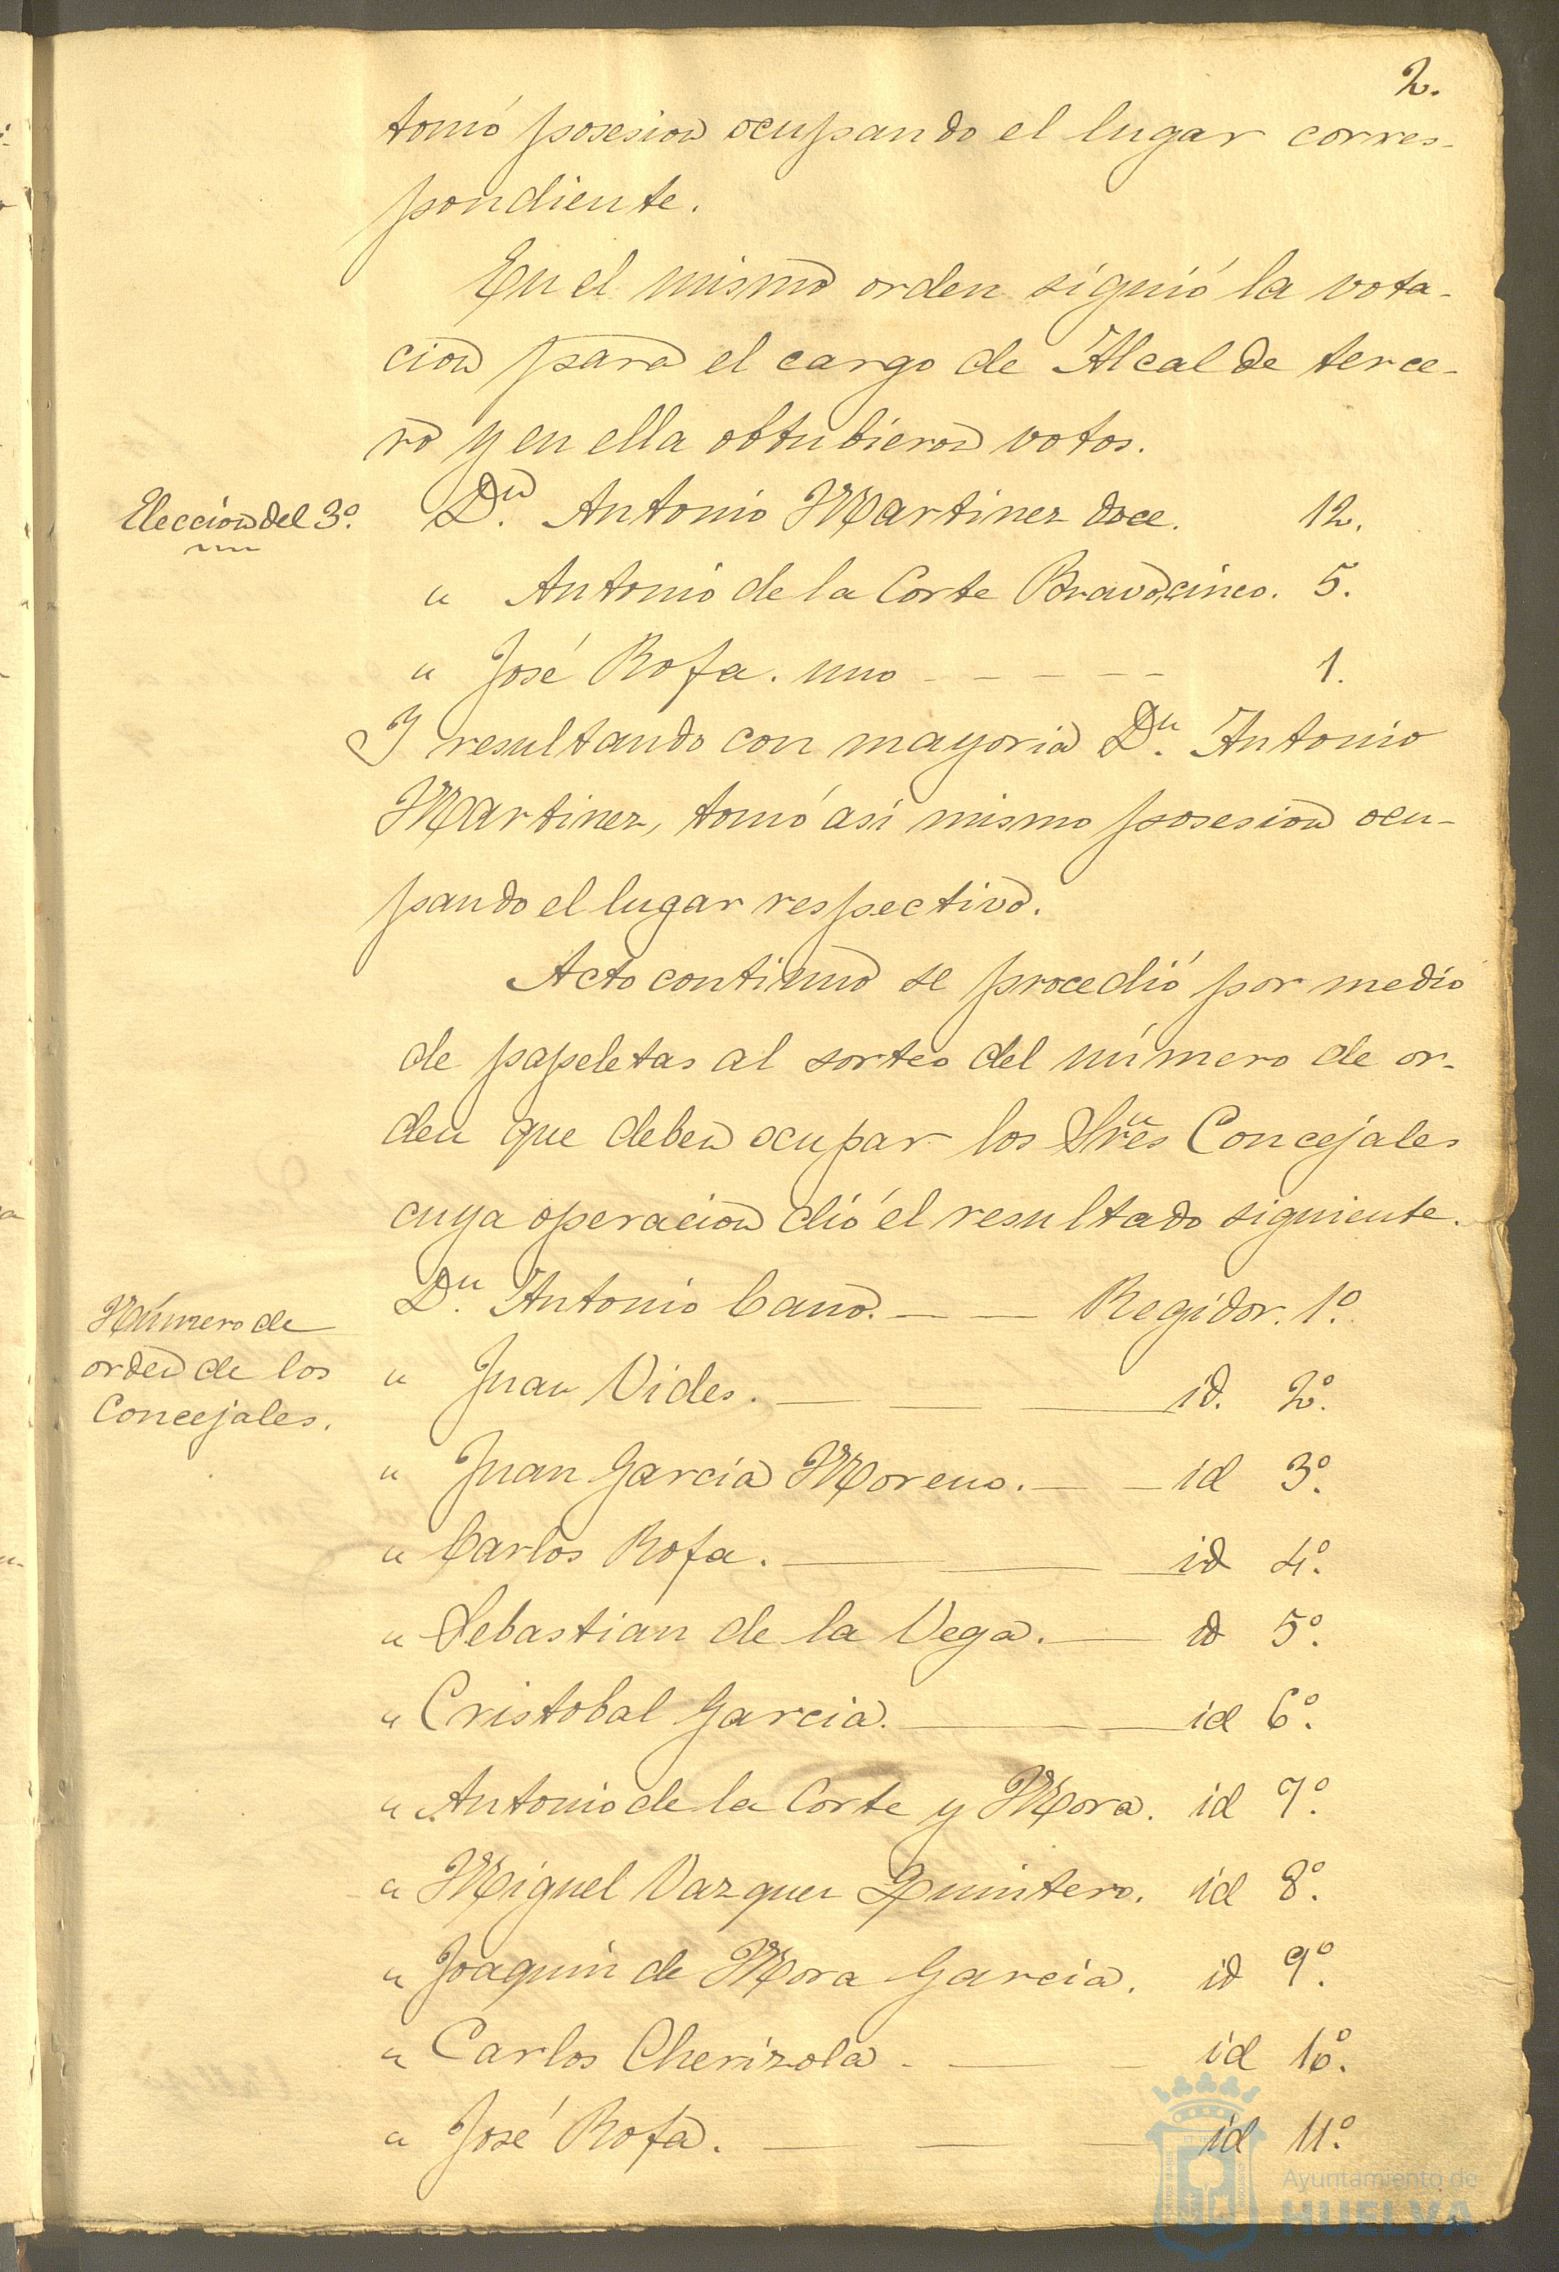 2.
tomó posesion ocupando el lugar corres-
pondiente.
En el mismo orden siguió la vota-
cion para el cargo de Alcalde terce-
ro y en ella obtubieron votos.
Eleccion del 3º.
Dn. Antonio Martinez doce. 12.
" Antonio de la Corte Bravo, cinco. 5.
" José Rofa. uno - - - - - 1.
Y resultando con mayoria Dn. Antonio
Martinez, tomó asi mismo posesion ocu-
pando el lugar respectivo.
Acto continuo se procedió por medio
de papeletas al sorteo del número de or-
den que deben ocupar los Sres Concejales
cuya operacion dió el resultado siguiente.
Número de
orden de los
Concejales.
Dn. Antonio Cano. — — Regidor. 1º.
" Juan Vides. — — id. 2º.
" Juan Garcia Moreno. — — id 3º.
" Carlos Rofa. — — — id 4º.
" Sebastian de la Vega. — id 5º.
" Cristobal Garcia. — — — id 6º.
" Antonio de la Corte y Mora. id 7º.
" Miguel Vazquez Quintero. id 8º.
" Joaquin de Mora Garcia. id 9º.
" Carlos Cherizola. — — id 10º.
" José Rofa. — — — id 11º.
Ayuntamiento de
HUELVA